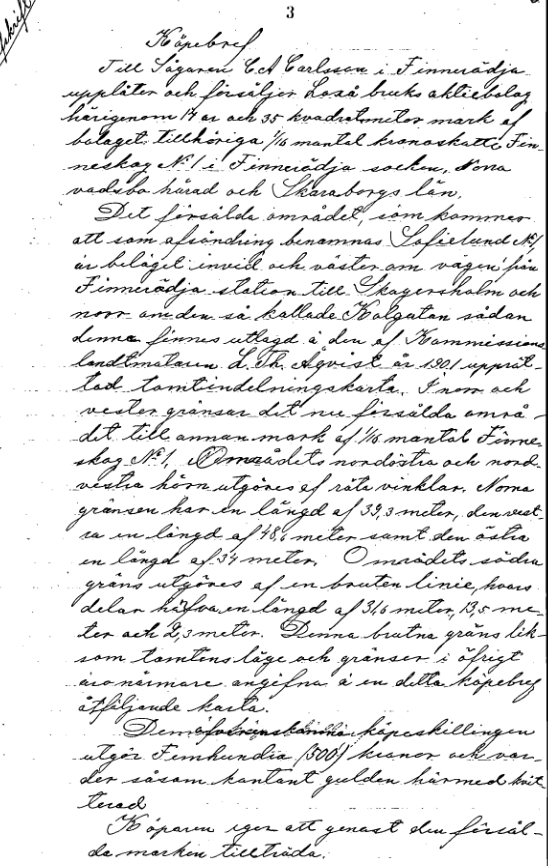 3
Afskrift
Köpebref
Till Sågaren C A Carlsson i Finnerödja
upplåter och försäljer Laxå bruks aktiebolag
härigenom 14 ar och 35 kvadratmeter mark af
bolaget tillhöriga 1/16 mantal kronoskatte Fin-
neskog No 1 i Finnerödja socken, Norra
vadsbo härad och Skaraborgs län.
Det försålda området, som kommer
att som afsöndring benämnas Sofielund No 1
är beläget invid och väster om vägen från
Finnerödja station till Skagersholm och
norr om den så kallade Kolgatan sådan
denna finnes utlagd å den af Kommissions
landtmätaren L. Th. Aqvist år 1901 upprät-
tad tomtindelningskarta. I norr och
vester gränsar det nu försålda områ-
det till annan mark af 1/16 mantal Finne-
skog No 1, Områdets nordöstra och nord-
vestra hörn utgöres af räta vinklar. Norra
gränsen har en längd af 39,3 meter, den vest-
ra en längd af 48,6 meter samt den östra
en längd af 34 meter. Områdets södra
gräns utgöres af en bruten linie, hvars
delar hafva en längd af 31,6 meter, 13,5 me-
ter och 2,3 meter. Denna brutna gräns lik-
som tomtens läge och gränser i öfrigt
äro närmare angifna å en detta köpebref
åtföljande karta.
Den köpeskillingen
utgör Femhundra (500) kronor och var-
der såsom kontant gulden härmed kvit-
terad
Köparen eger att genast den försål-
da marken tillträda.